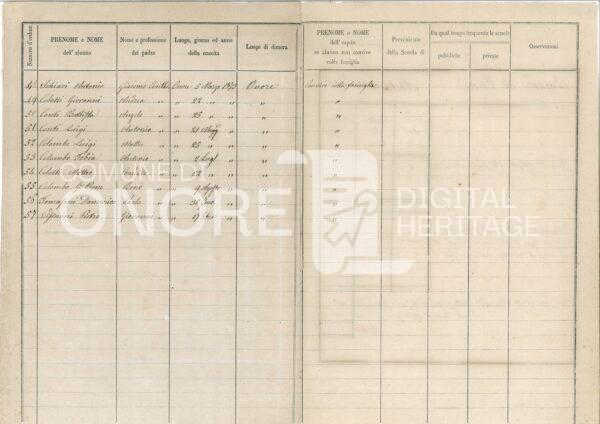 Numero d'ordine
PRENOME e NOME
dell' alunno
Nome e professione
del padre
Luogo, giorno ed anno
della nascita
Luogo di dimora
PRENOME e NOME
dell' ospite
se alunno non convive
colla famiglia
Proveniente
dalla Scuola di
Da qual tempo frequenta le scuole
pubbliche
private
Osservazioni
Schiavi Antonio Giacomo Onore 5 Marzo 1873 Onore Convive colla famiglia
49 Colotti Giovanni Andrea " " 22 " " "
50 Conti Battista Angelo " " 25 " " "
51 Conti Luigi Antonio " " 21 " "
52 Colombo Luigi Matteo " " 25 " " "
53 Colombo Tobia Antonio " " 2 Lugl " "
54 Colotti Matteo " " 22 " " "
55 Colombo " " "
56 Tomasoni Domenico Paolo " " " "
57 Pietro Giovanni " " 17 " "
COMUNE DI
ONORE
DIGITAL
HERITAGE